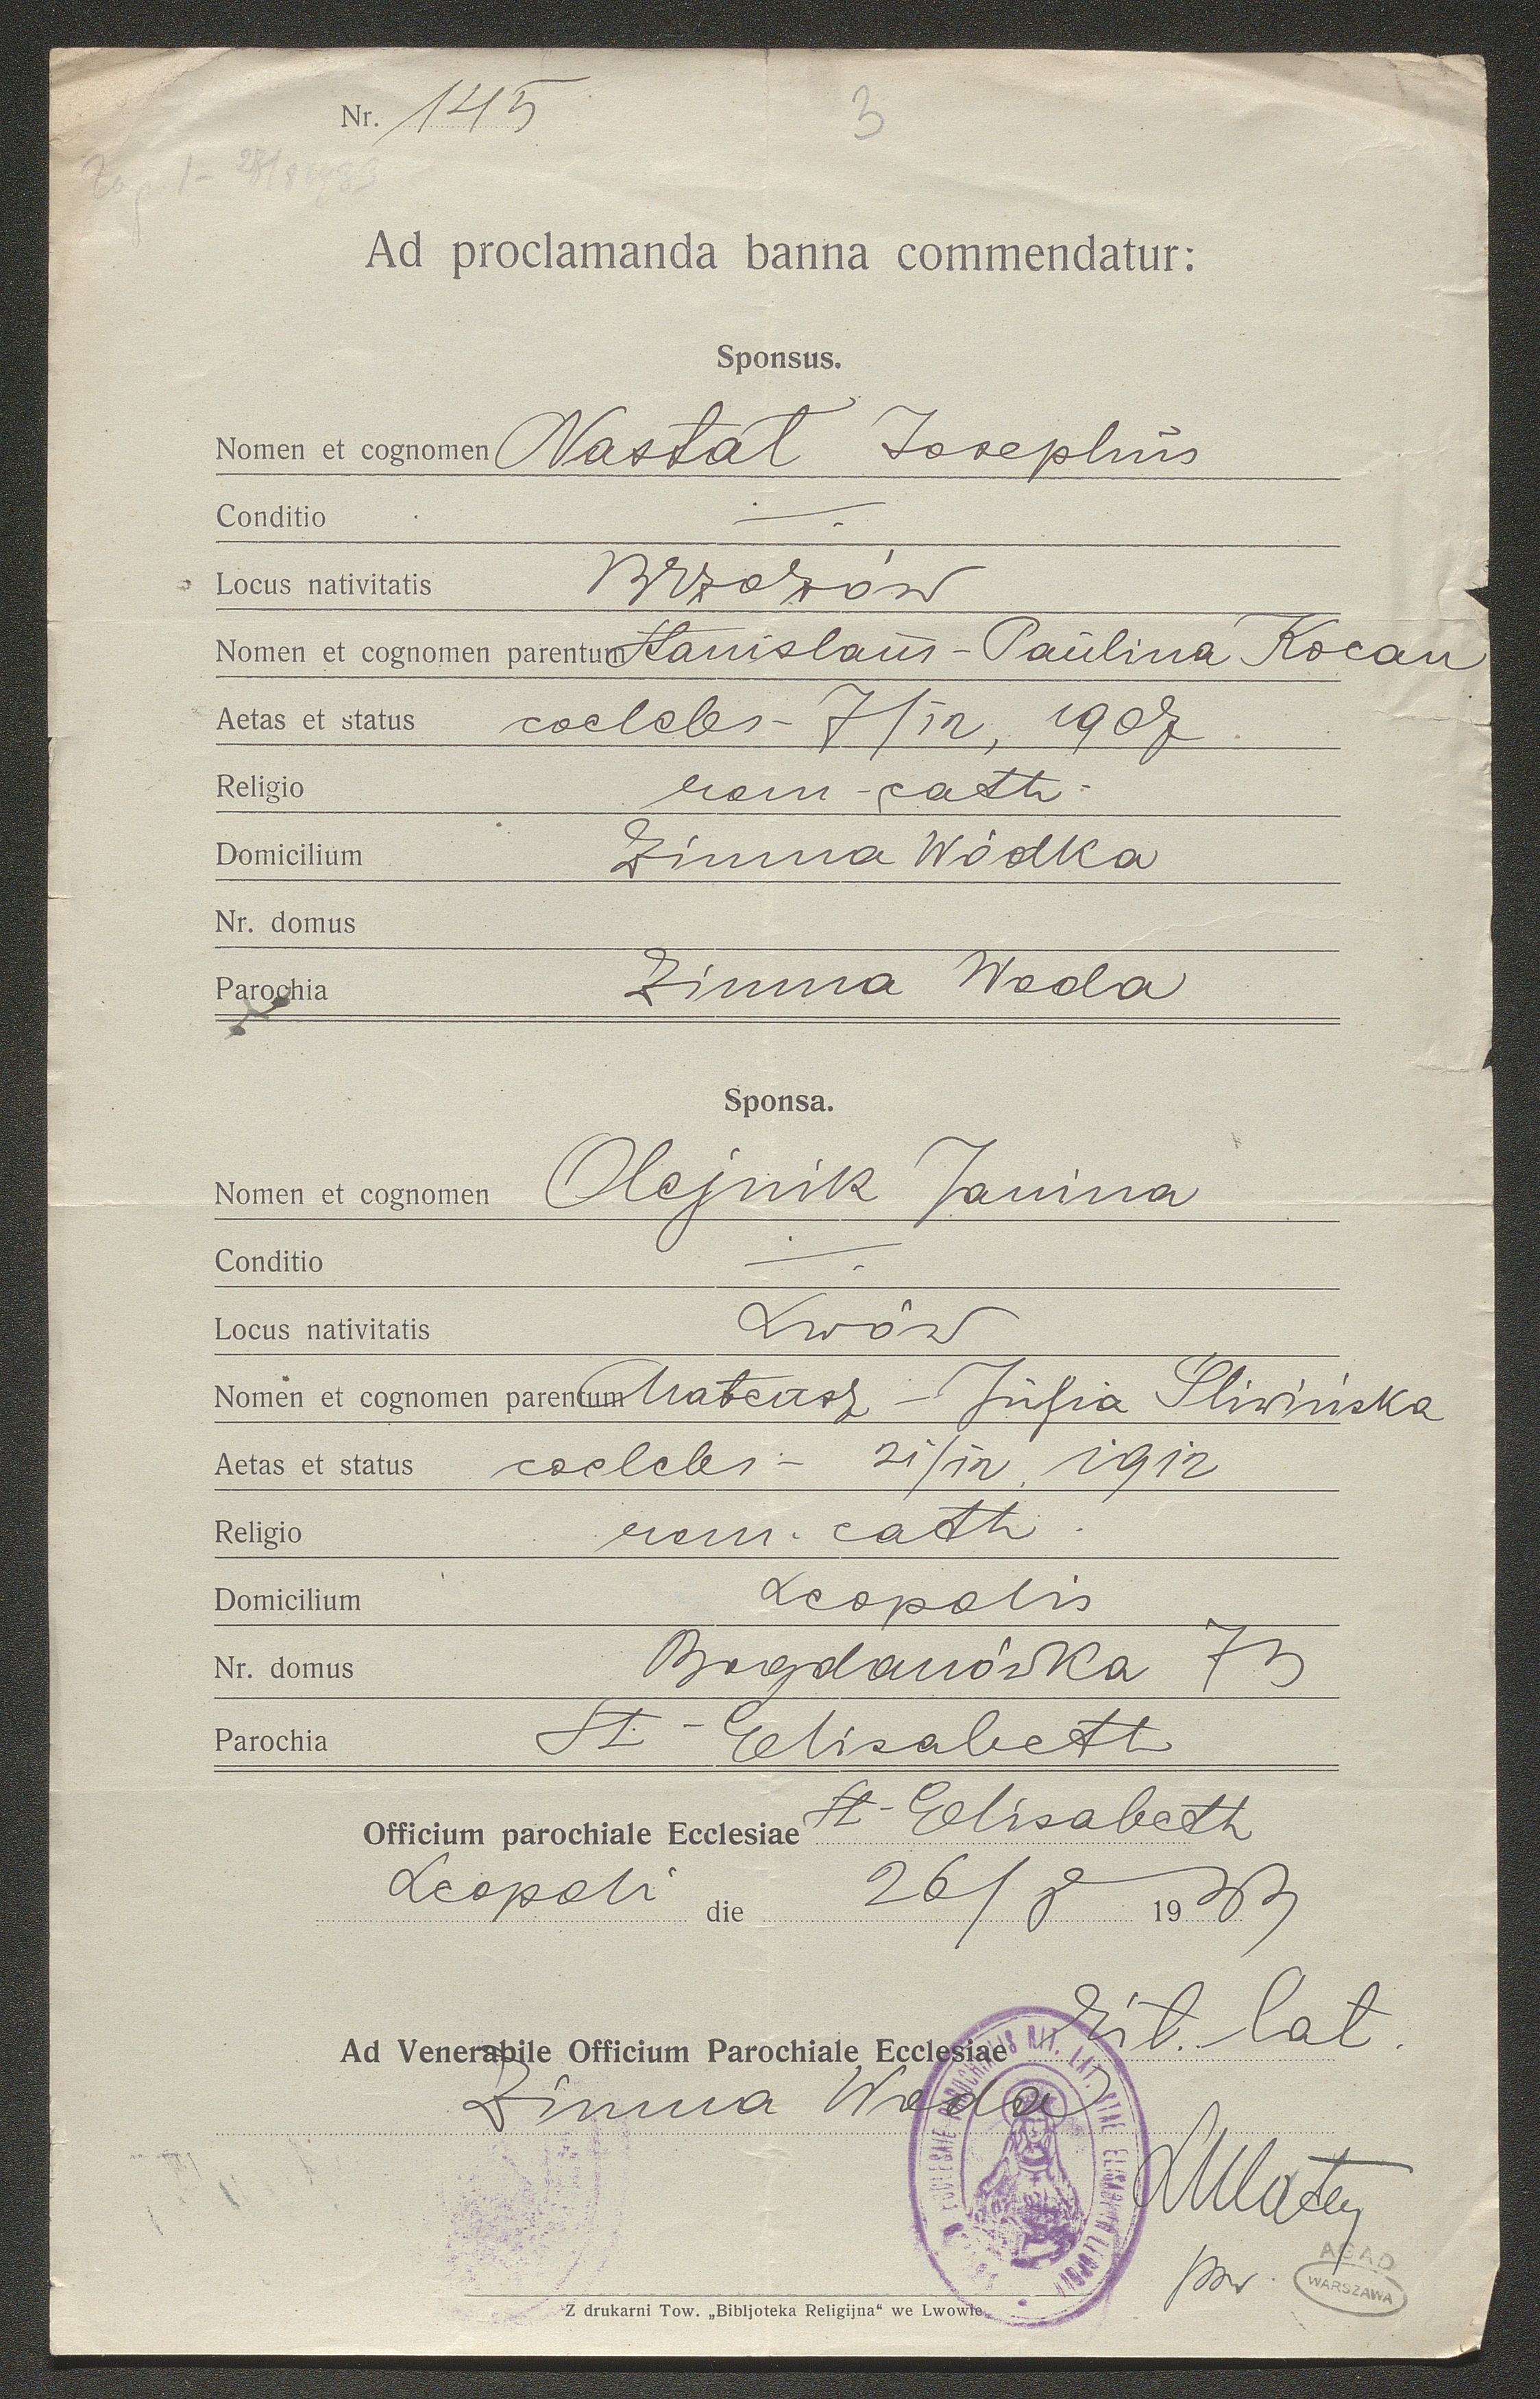 Nr. 145
3
Ad proclamanda banna commendatur:
Sponsus.
Nomen et cognomen Nastał Josephus
Conditio
Locus nativitatis Brzozów
Nomen et cognomen parentum Stanislaus - Paulina Kocan
Aetas et status coelebs - 7/12, 1907
Religio rom - cath -
Domicilium Zimna Wódka
Nr. domus
Parochia Zimna Woda
Sponsa.
Nomen et cognomen Olejnik Janina
Conditio
Locus nativitatis Lwów
Nomen et cognomen parentum Mateusz - Julia Śliwińska
Aetas et status coelebs - 21/12, 1912
Religio rom. cath.
Domicilium Leopolis
Nr. domus Bogdanówka 73
Parochia St - Elisabeth
Officium parochiale Ecclesiae St - Elisabeth
Leopoli die 26/8 1933
Ad Venerabile Officium Parochiale Ecclesiae rit. lat.
Zimna Woda
ECCLESIAE PAROCHIALIS RIT. LAT. STAE ELISABETH LEOPOLI
AGAD
WARSZAWA
Z drukarni Tow. „Bibljoteka Religijna“ we Lwowie.